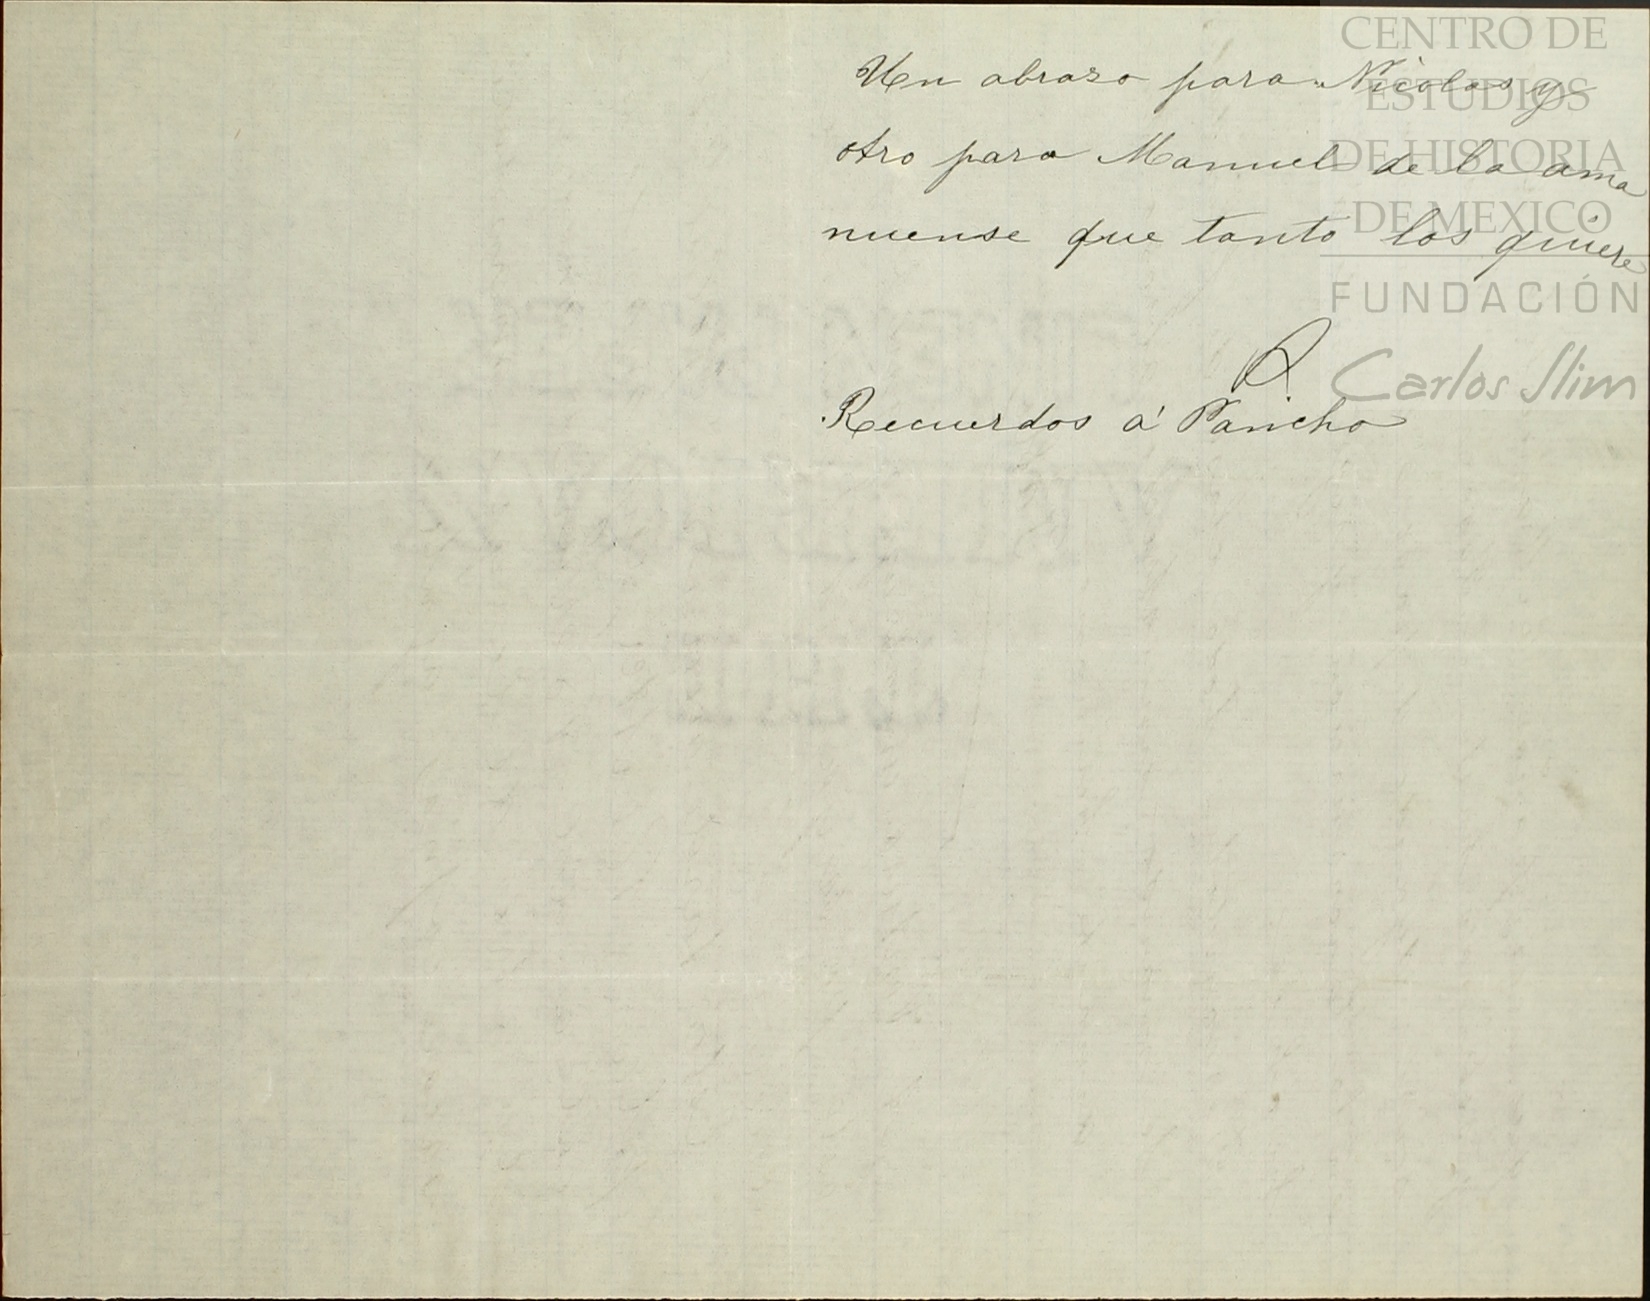 CENTRO DE
ESTUDIOS
DE HISTORIA
DE MEXICO
FUNDACIÓN
Carlos Slim
Un abraso para Nicolas y
otro para Manuel de la ama
nuense que tanto los quiere
R.
Recuerdos á Pancho